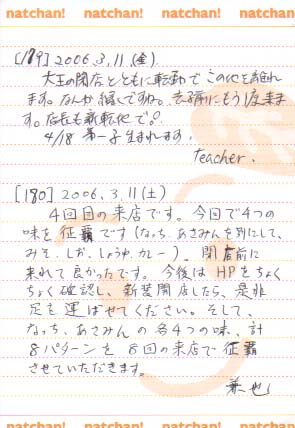 natchan! natchan! natchan! natchan!
[179] 2006.3.11 (金)
大王の閉店とともに転勤でこの地を離れ
ます。なんか縁ですね。去る前にもう1度来ま
す。店長も新転地で。
4/18 第一子 生まれます。
teacher.
[180] 2006.3.11 (土)
4回目の来店です。今回で4つの
味を征覇です(なっち、あさみんを別にして、
みそ、しお、しょうゆ、カレー)。閉店前に
来れて良かったです。今後はHPをちょく
ちょく確認し、新装開店したら、是非
足を運ばせてください。そして、
なっち、あさみんの各4つの味、計
8パターンを8回の来店で征覇
させていただきます。
兼也
natchan! natchan! natchan! natchan!